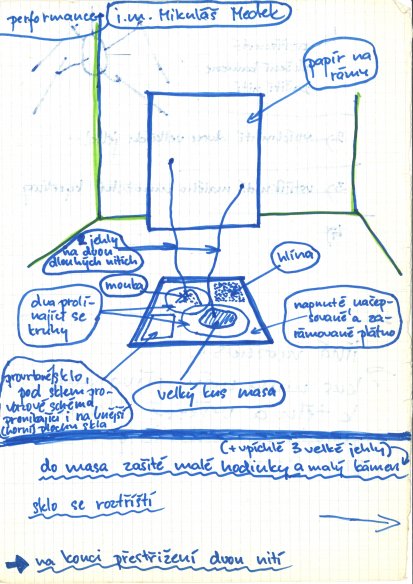 performance
i.m. Mikuláš Medek
papír na
rámu
2 jehly
na dvou
dlouhých nitích
hlína
mouka
dva prolí-
nající se
kruhy
napnuté našep-
sované a za-
rámované plátno
provrtané sklo,
pod sklem pro-
vazové schéma
pronikající i na vnější
(horní) plochu skla
velký kus masa
(+ vpíchlé 3 velké jehly)
do masa zašité malé hodinky a malý kámen
sklo se roztříští
na konci přestřižení dvou nití